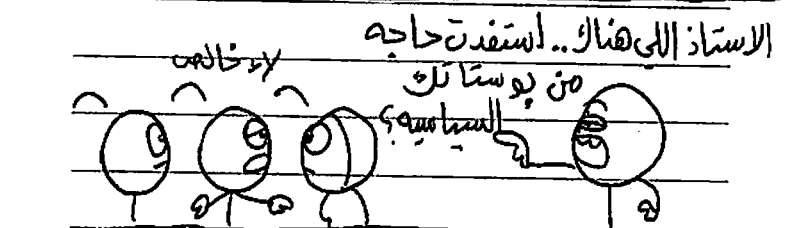 الاستاذ اللي هناك.. استفدت حاجه
من بوستاتك
السياسيه؟
لاء خالص